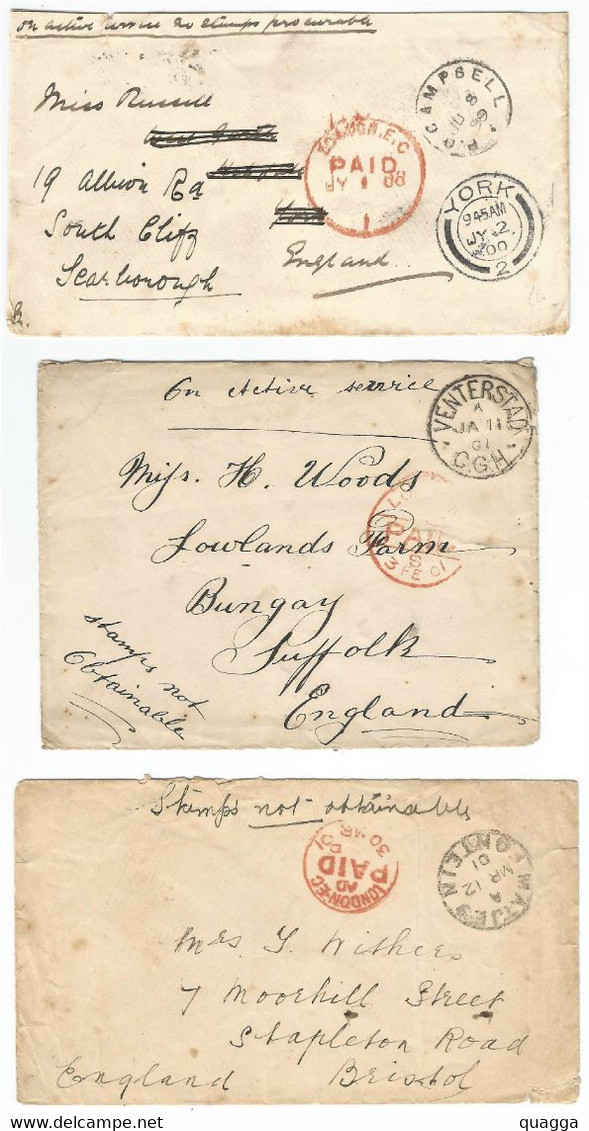 on active service no stamps procurable
Miss Russell
19 Albion Rd
South Cliff
Scarborough
England
P.O CAMPBELL
JU 8
LONDON, E.C
PAID
JY 1 00
1
YORK
9 45 AM
JY 2
00
2
On Active service
Miss. H. Woods
Lowlands Farm
Bungay
Suffolk
England
stamps not
Obtainable
VENTERSTAD
A
JA 11
01
C.G.H.
PAID
3 FE 01
Stamps not obtainable
LONDON·EC
PAID
AD
30 MR
01
MATJESFONTEIN
A
MR 12
01
Mrs T. Withers
7 Moorhill Street
Stapleton Road
Bristol
England
quagga